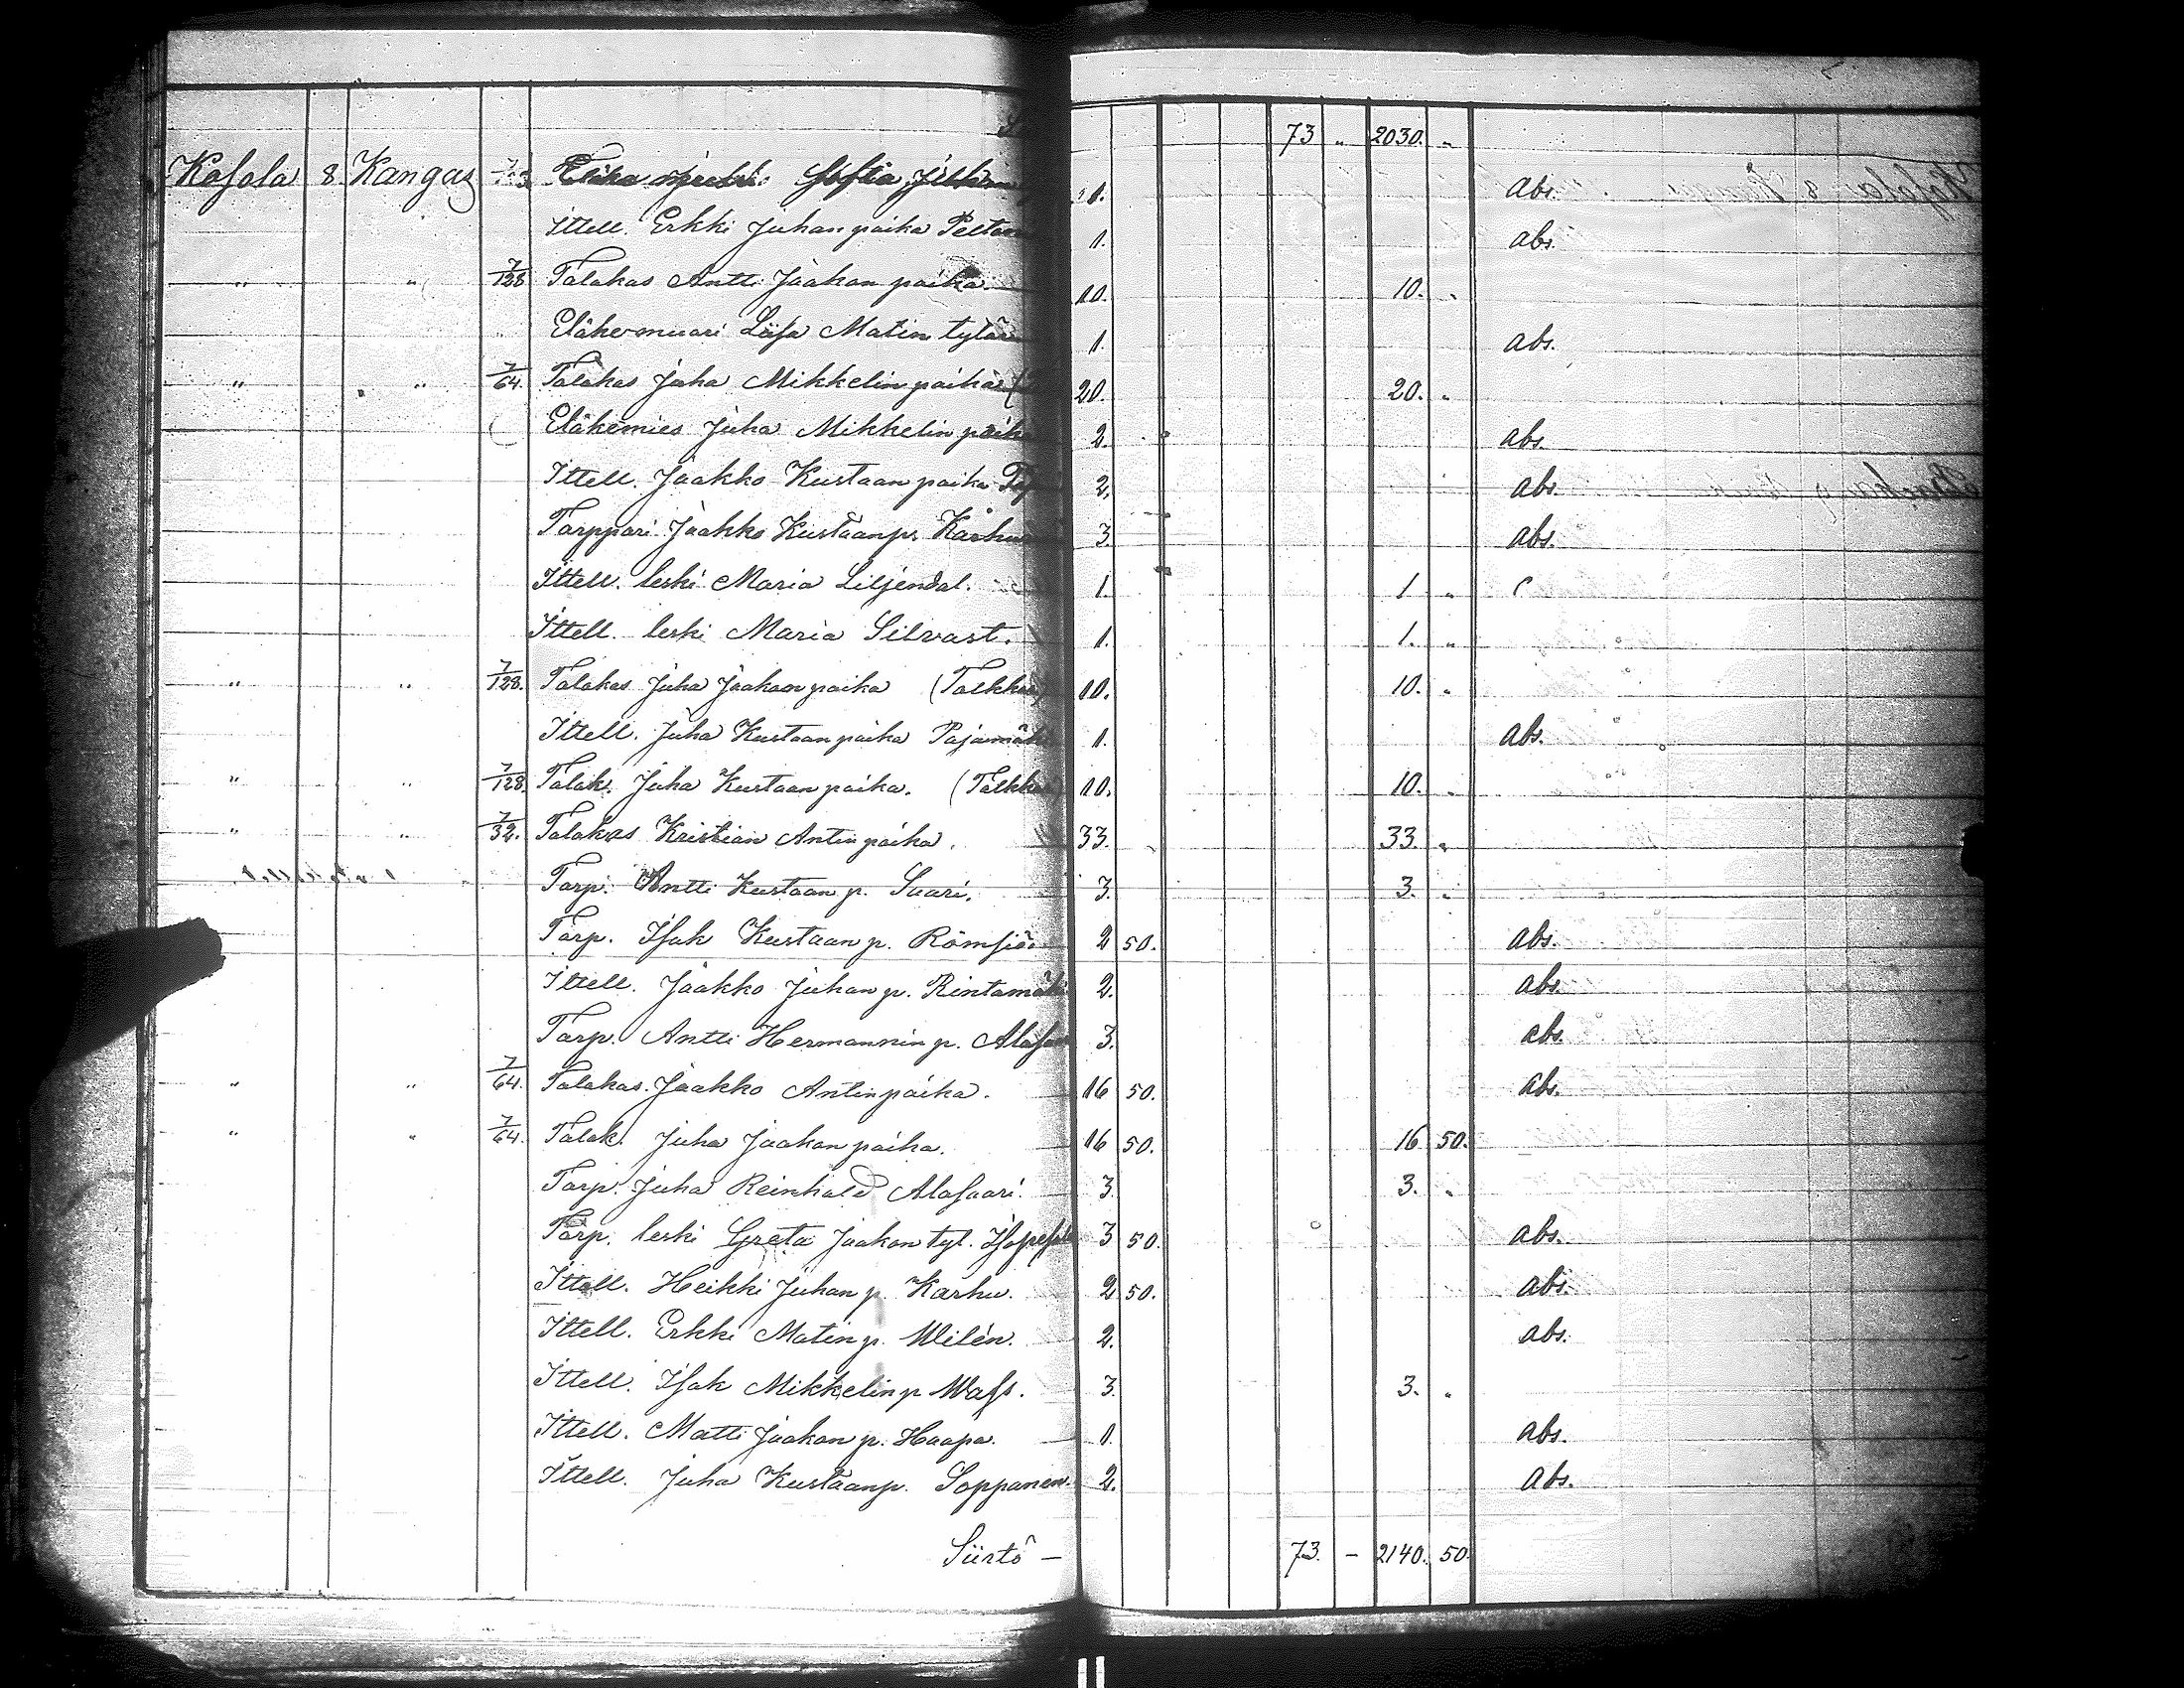 73 " 2030. "
Kosola 8 Kangas Sofia 1. abs.
Ittell. Erkki Juhan poika 1. abs.
" " 7/128 Talakas Antti Jaakon poika 10. 10. "
Eläkemuari Liisa Matin tytär 1. abs.
" " 7/64. Talakas Juha Mikkelin poika 20. 20. "
Eläkemies Juha Mikkelin poika 2. abs.
Ittell. Jaakko Kustaan poika 2. abs.
Torppari Jaakko Kustaanp. 3. abs.
Ittell. leski Maria Liljendal. 1. 1 "
Ittell. leski Maria Silvast. 1. 1. "
" " 7/128. Talakas Juha Jaakon poika 10. 10. "
Ittell. Juha Kustaan poika Pajamäki 1. abs.
" " 7/128. Talak. Juha Kustaan poika. 10. 10. "
" " 7/32. Talakas Kristian Antin poika. 33. 33. "
Torp. Antti Kustaan p. Saari. 3. 3. "
Torp. Isak Kustaan p. 2 50. abs.
Ittell. Jaakko Juhan p. Rintamäki 2. abs.
Torp. Antti Hermannin p. 3. abs.
" " 7/64. Talakas. Jaakko Antin poika. 16 50. abs.
" " 7/64. Talak. Juha Jaakon poika. 16 50. 16 50.
Torp. Juha Reinhold Alasaari. 3. 3. "
Torp. leski Greta Jaakon tyt. 3 50. abs.
Ittell. Heikki Juhan p. Karhu. 2 50. abs.
Ittell. Erkki Matin p. Wilén. 2. abs.
Ittell. Isak Mikkelin p Wass. 3. 3. "
Ittell. Matti Jaakon p. Haapa. 1. abs.
Ittell. Juha Kustaanp. Soppanen. 2. abs.
Siirtö — 73. – 2140. 50.